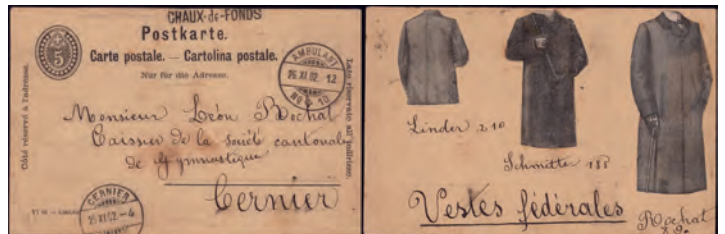 CHAUX-de-FONDS
Postkarte.
Carte postale. — Cartolina postale.
Nur für die Adresse.
5
Côté réservé à l'adresse.
Lato riservato all'indirizzo.
AMBULANT
25 XI 02 12
No 10
Monsieur Léon Rochat
Caissier de la Société cantonale
de Gymnastique
Cernier
CERNIER
25 XI 02 - 4
Linder 210
Schmitter 188
Vestes fédérales
Rochat